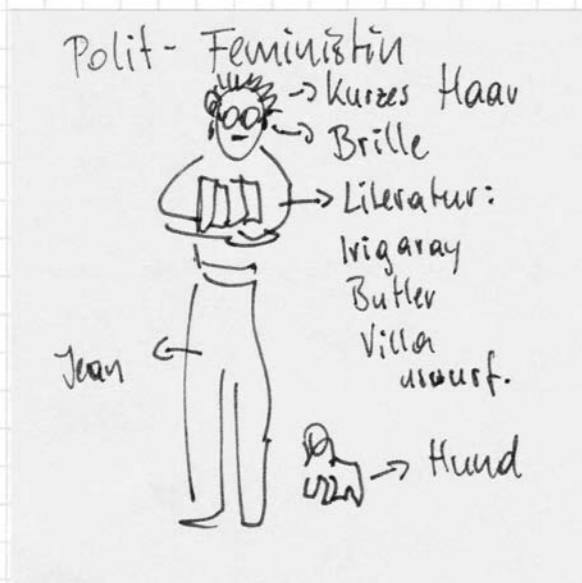 Polit- Feministin
-> Kurzes Haar
-> Brille
-> Literatur:
Irigaray
Butler
Villa
uswusf.
Jean <-
-> Hund